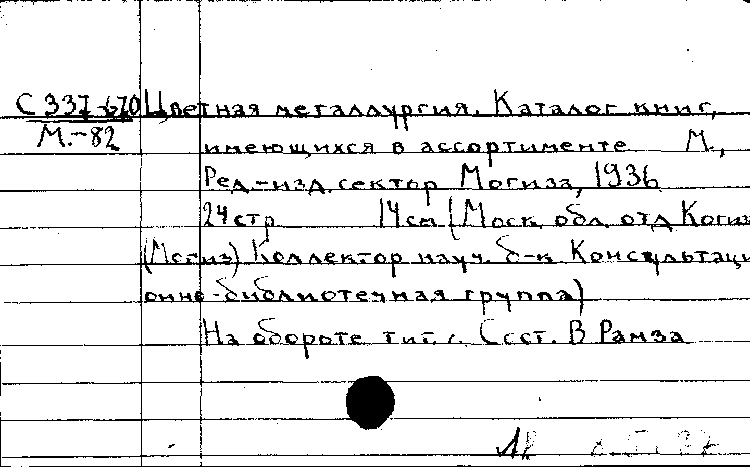 С 337-670 Цветная металлургия. Каталог книг,
М.-82
имеющихся в ассортименте М.,
Ред.-изд. сектор Могиза, 1936
24 стр 14 см (Моск. обл. отд Когиз
(Могиз) Коллектор науч. б-к Консультаци
онно-библиотечная группа)
На обороте тит. л. Сост. В Рамза